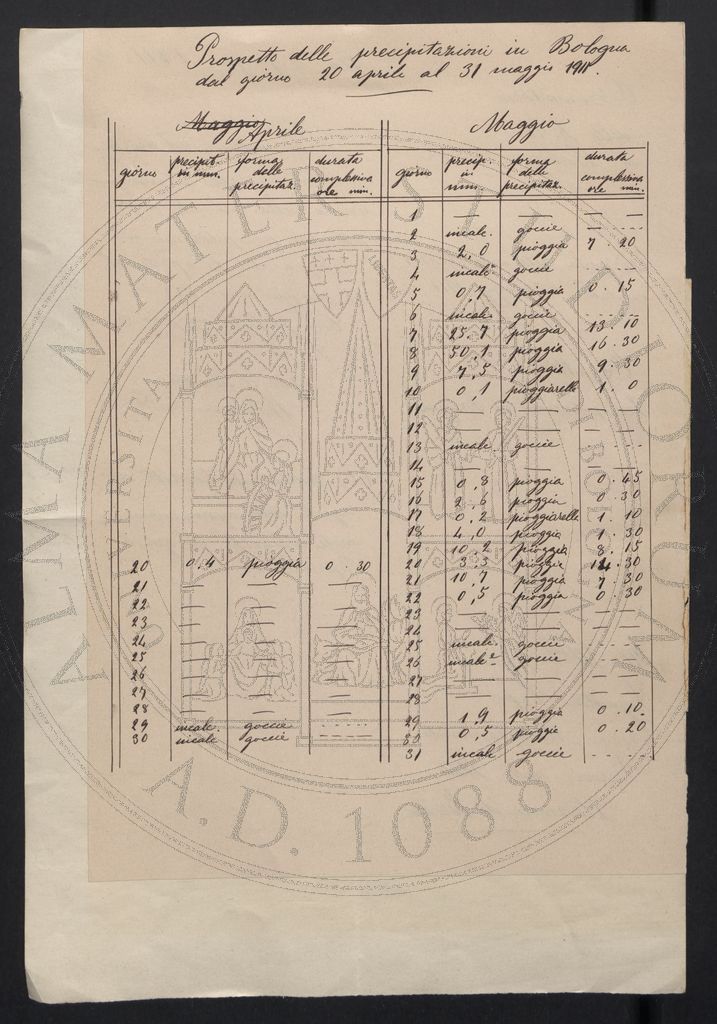 Prospetto delle precipitazioni in Bologna
dal giorno 20 aprile al 31 maggio 1911.
Maggio Aprile
giorno precipit. in mm. forma delle precipitaz. durata complessiva ore min.
20 0,4 pioggia 0.30
21 — — —
22 — — —
23 — — —
24 — — —
25 — — —
26 — — —
27 — — —
28 — — —
29 incalc. goccie ....
30 incalc goccie ....
Maggio
giorno precip. in mm. forma delle precipitaz. durata complessiva ore min.
1 — — — —
2 incalc. goccie ....
3 2,0 pioggia 7.20
4 incalc. goccie ....
5 0,7 pioggia 0.15
6 incalc. goccie ....
7 25,7 pioggia 13.10
8 50,1 pioggia 16.30
9 7,5 pioggia 9.30
10 0,1 pioggiarella 1.0
11 — — — —
12 — — — —
13 incalc. goccie ....
14 — — — —
15 0,8 pioggia 0.45
16 2,6 pioggia 0.30
17 0,2 pioggiarella 1.10
18 4,0 pioggia 1.30
19 10,2 pioggia 8.15
20 3,3 pioggia 14.30
21 10,7 pioggia 7.30
22 0,5 pioggia 0.30
23 — — — —
24 — — — —
25 incalc. goccie ....
26 incalc. goccie ....
27 — — — —
28 — — — —
29 1,9 pioggia 0.10
30 0,5 pioggia 0.20
31 incalc goccie ....
ALMA MATER STUDIORUM
A.D. 1088